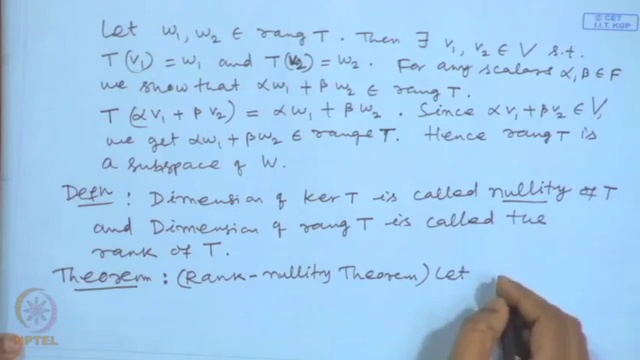 © CET
I.I.T. KGP
Let w₁, w₂ ∈ rang T. Then ∃ v₁, v₂ ∈ V s.t.
T(v₁) = w₁ and T(v₂) = w₂. For any scalars α, β ∈ F
we show that αw₁ + βw₂ ∈ rang T.
T(αv₁ + βv₂) = αw₁ + βw₂. Since αv₁ + βv₂ ∈ V,
we get αw₁ + βw₂ ∈ range T. Hence rang T is
a subspace of W.
Defn: Dimension of ker T is called nullity of T
and Dimension of rang T is called the
rank of T.
Theorem: (Rank-nullity Theorem) Let
NPTEL